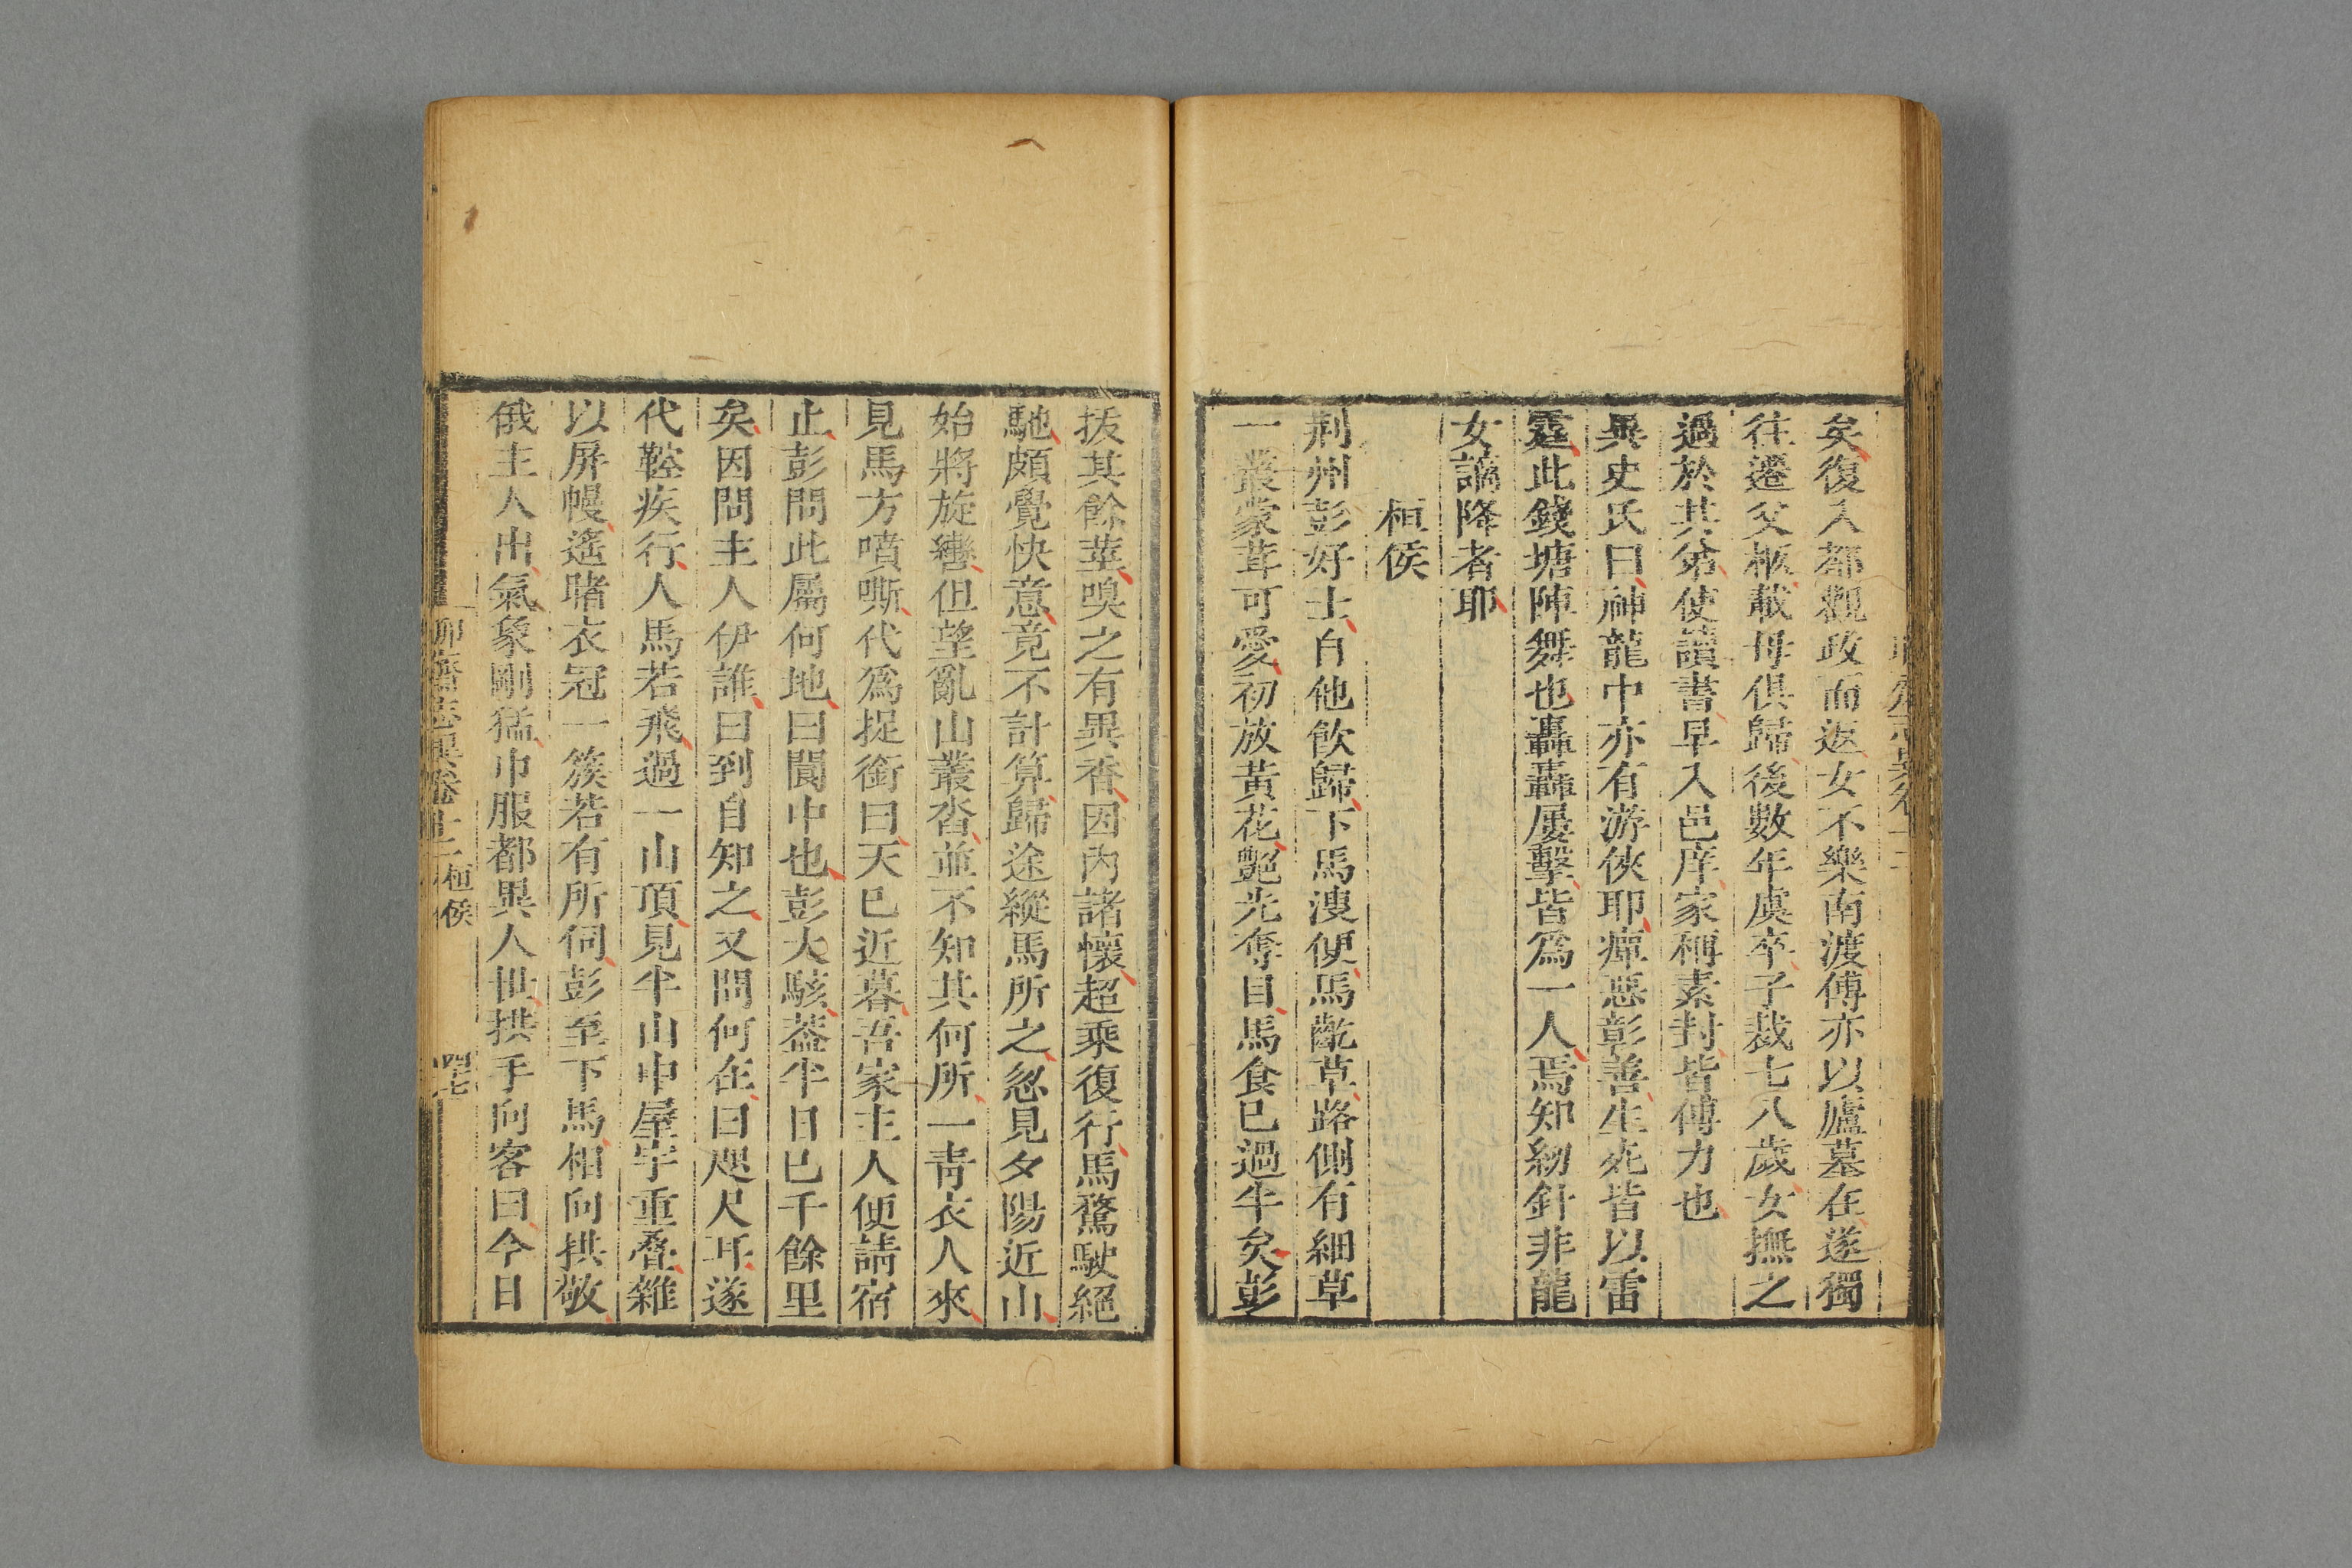 矣復入都觀政而返女不樂南渡傅亦以廬墓在遂獨
往遷父柩載母俱歸後數年虞卒子裁七八歲女撫之
過於其弟使讀書早入邑庠家稱素封皆傅力也
異史氏曰神龍中亦有游俠耶癉惡彰善生死皆以雷
霆此錢塘陣舞也轟轟屢擊皆爲一人焉知紉針非龍
女謫降者耶
桓侯
荆州彭好士自他飲歸下馬溲便馬齕草路側有細草
一叢蒙茸可愛初放黃花艷光奪目馬食已過半矣彭
拔其餘莖嗅之有異香因內諸懷超乘復行馬騖駛絕
馳頗覺快意竟不計算歸途縱馬所之忽見夕陽近山
始將旋轡但望亂山叢沓並不知其何所一青衣人來
見馬方噴嘶代爲捉銜曰天已近暮吾家主人便請宿
止彭問此屬何地曰閬中也彭大駭葢半日已千餘里
矣因問主人伊誰曰到自知之又問何在曰咫尺耳遂
代鞚疾行人馬若飛過一山頂見半山中屋宇重疊雜
以屏幔遙睹衣冠一簇若有所伺彭至下馬相向拱敬
俄主人出氣象剛猛巾服都異人世拱手向客曰今日
聊齋志異卷十二 桓侯 四七